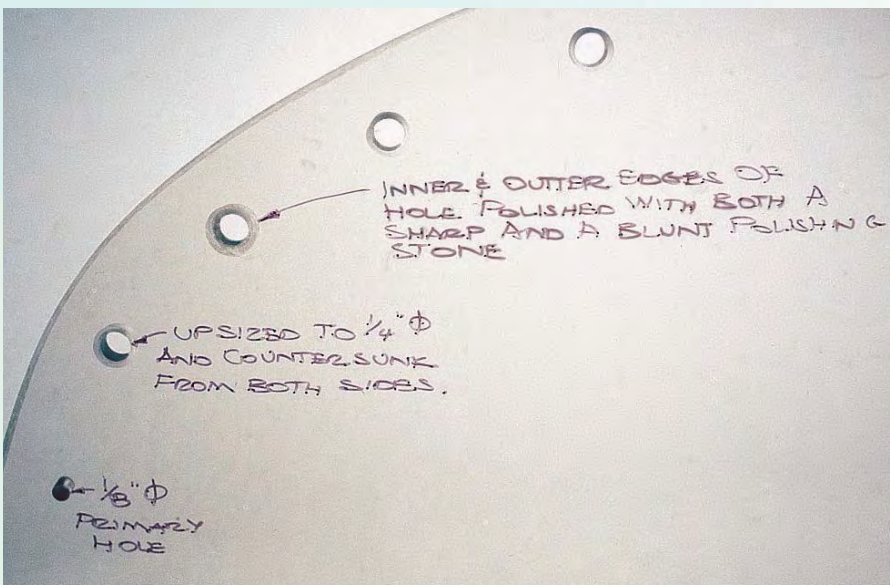 INNER & OUTTER EDGES OF
HOLE POLISHED WITH BOTH A
SHARP AND A BLUNT POLISHING
STONE
UPSIZED TO 1/4" Φ
AND COUNTERSUNK
FROM BOTH SIDES.
1/8" Φ
PRIMARY
HOLE